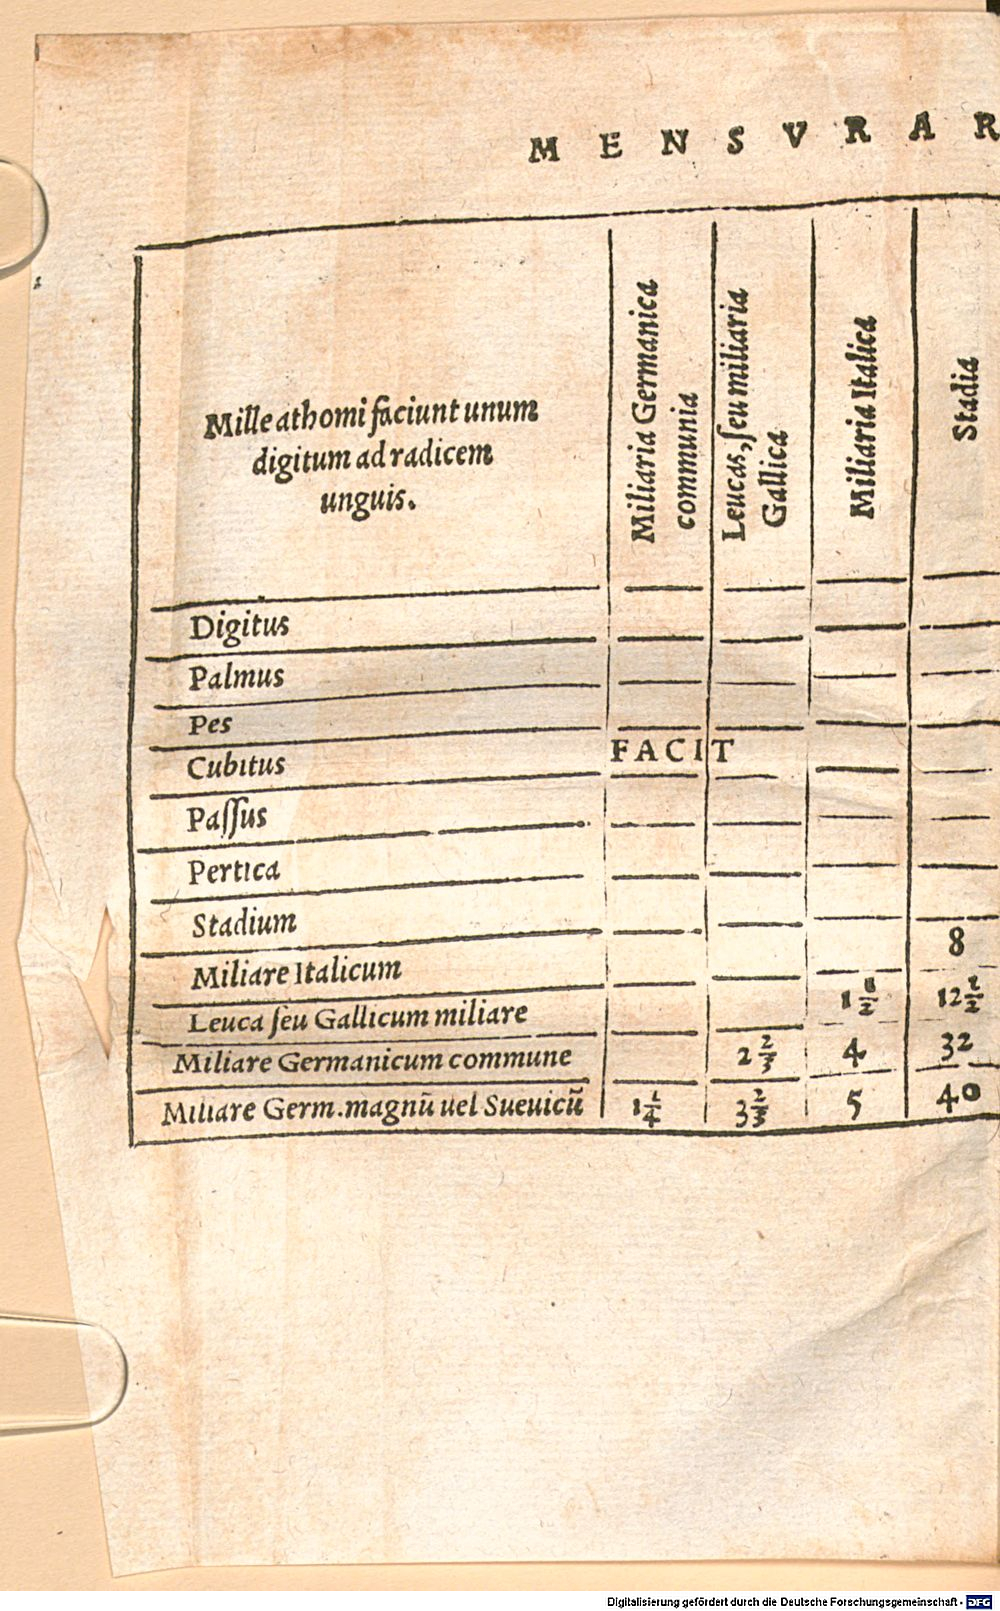 MENSVRAR
Mille athomi faciunt unum
digitum ad radicem
unguis.
Miliaria Germanica
communia
Leucas, ſeu miliaria
Gallica
Miliaria Italica
Stadia
Digitus
Palmus
Pes
FACIT
Cubitus
Paſſus
Pertica
Stadium
8
Miliare Italicum
1 1/2 12 1/2
Leuca ſeu Gallicum miliare
2 2/3 4 32
Miliare Germanicum commune
1 1/4 3 2/3 5 40
Miliare Germ. magnū uel Sueuicū
Digitalisierung gefördert durch die Deutsche Forschungsgemeinschaft - DFG